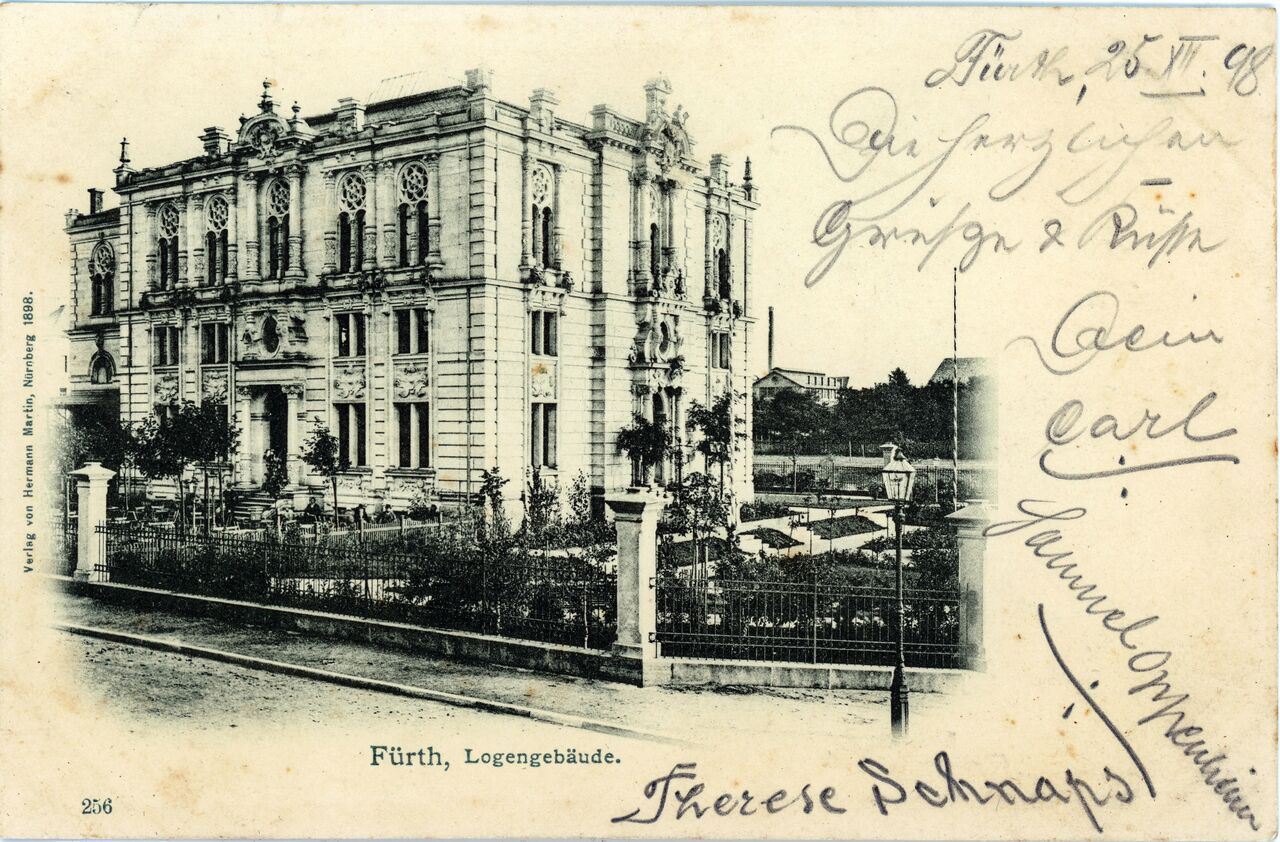 Fürth, 25 XII. 98
Die herzlichen
Grüsse & Küsse
Dein
Carl
Oppenheimer
Therese Schnaps
Fürth, Logengebäude.
256
Verlag von Hermann Martin, Nürnberg 1898.